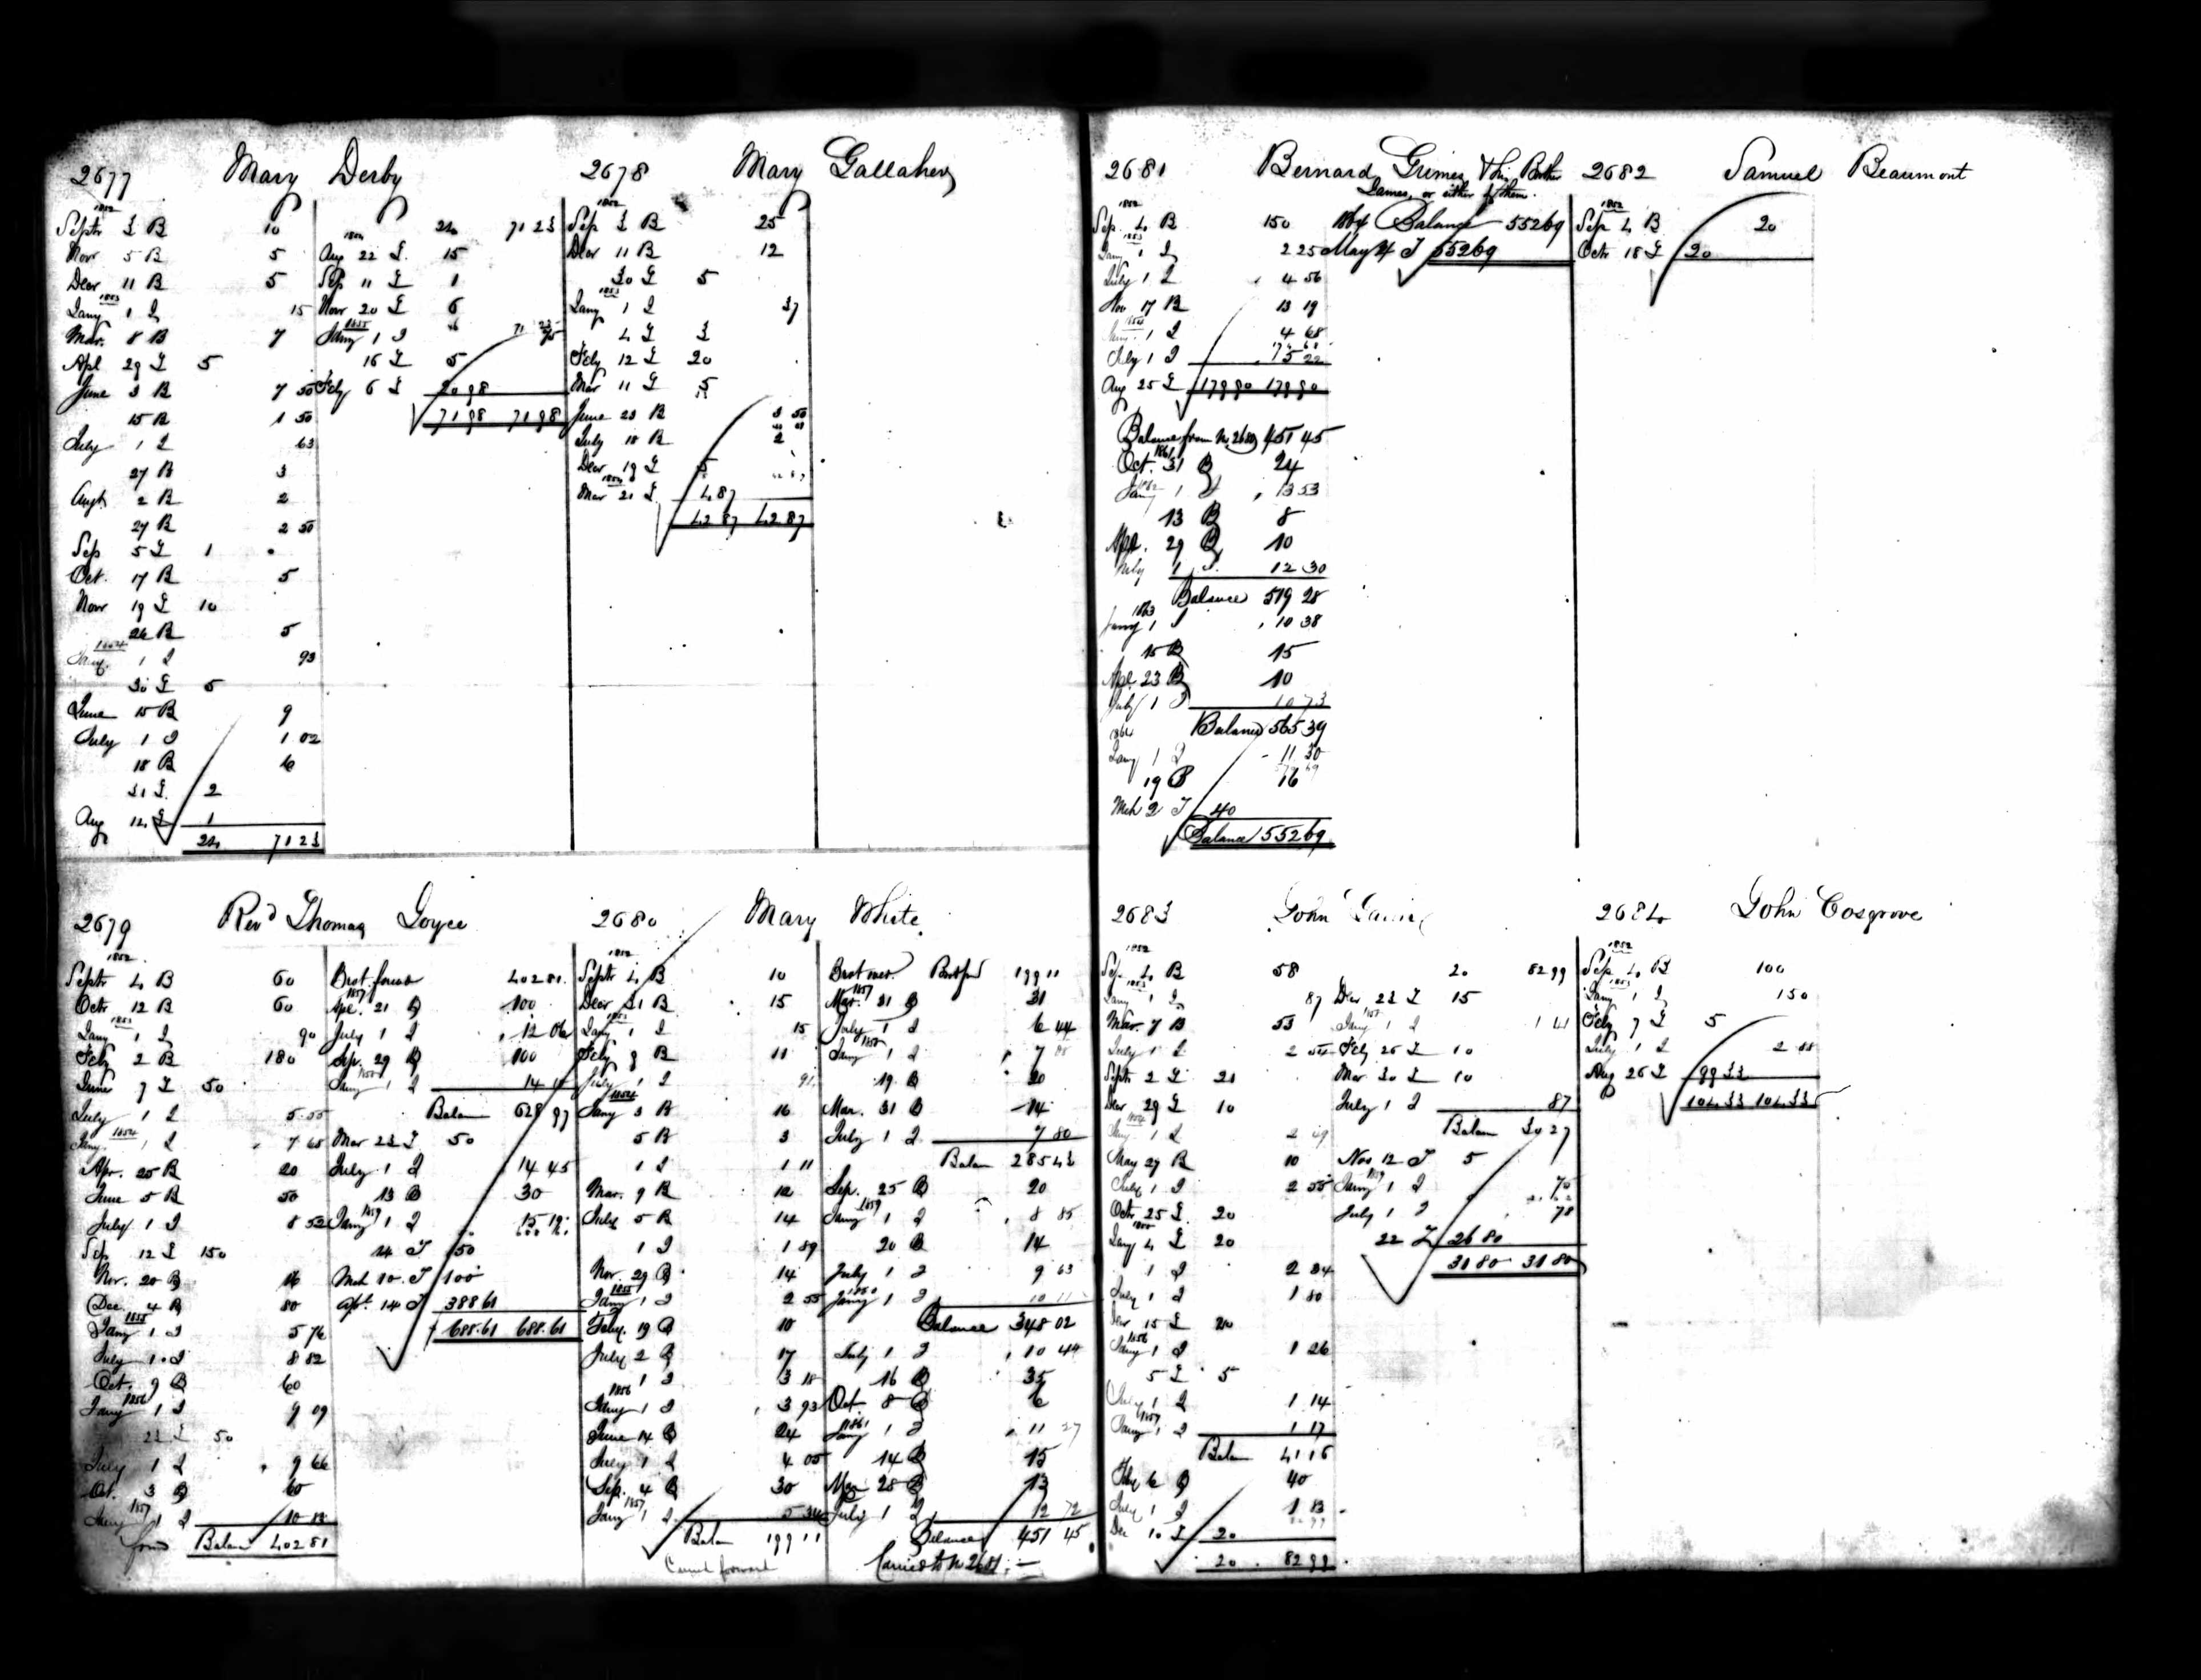 2677 Mary Derby
1852
Septr 3 B 10
Novr 5 B 5
Decr 11 B 5
1853
Jany 1 I 15
Mar. 8 B 7
Apl 29 T 5
June 3 B 7 50
15 B 1 50
July 1 I 63
27 B 3
Augt 2 B 2
27 B 2 50
Sep 5 T 1
Oct. 17 B 5
Novr 19 T 10
26 B 5
1854
Jany. 1 I 93
30 T 5
June 15 B 9
July 1 I 1 02
18 B 6
31 T. 2
Aug 12 T 1
24 71 23
24 71 23
1854
Aug 22 T. 15
Sep 11 T 1
Nov 20 T 6
1855
Jany 1 I 75
16 T 5
Feby 6 T 20 98
71 98 71 98
2678 Mary Gallaher
1852
Sep 3 B 25
Decr 11 B 12
30 T 5
1853
Jany 1 I 37
4 T 3
Feby 12 T 20
Mar 11 T 5
June 23 B 3 50
July 18 B 2
Decr 19 T 5
1854
Mar 21 T. 4 87
42 87 42 87
2679 Revd Thomas Joyce
1852
Septr 4 B 60
Octr 12 B 60
1853
Jany 1 I 90
Feby 2 B 180
June 7 T 50
July 1 I 5.55
1854
Jany. 1 I 7 65
Apr. 25 B 20
June 5 B 50
July 1 I 8 52
Sep 12 T 150
Nov. 20 B 16
Dec. 4 B 80
1855
Jany 1 I 5 76
July 1 I 8 82
Oct. 9 B 60
1856
Jany 1 I 9 09
22 T 50
July 1 I 9 66
Oct. 3 B 60
1857
Jany 1 I 10 13
ford Balan 402 81
Brot forwd 402 81.
1857
Apl. 21 B 100
July 1 I 12 06
Sep. 29 B 100
1858
Jany 1 I 14 10
Balan 628 97
Mar 23 T 50
July 1 I 14 45
13 B 30
1859
Jany 1 I 15 19
14 T 150
Mch 10. T 100
Apl. 14 T 388 61
688.61 688.61
2680 Mary White
1852
Septr 4 B 10
Decr 31 B 15
1853
Jany 1 I 15
Feby 8 B 11
July 1 I 91
1854
Jany 3 B 16
5 B 3
1 I 1 11
Mar. 9 B 12
July 5 B 14
1 I 1 89
Nov. 29 B 14
1855
Jany 1 I 2 55
Feby. 19 B 10
July 2 B 17
1 I 3 18
1856
Jany 1 I 3 93
June 14 B 24
July 1 I 4 05
Sep. 4 B 30
1857
Jany 1 I 5 34
Balan 199 11
Carrd forward
Brot over Brotford 199 11
1857
Mar. 31 B 31
July 1 I 6 44
1858
Jany 1 I 7 08
19. B 20
Mar. 31 B 14
July 1 I 7 80
Balan 285 43
Sep. 25 B 20
1859
Jany 1 I 8 85
20 B 14
July 1 I 9 63
1860
Jany 1 I 10 11
Balance 348 02
July 1 I 10 44
16 B 35
Oct 8 B 6
1861
Jany 1 I 11 27
14 B 15
Mar 28 B 13
July 1 I 12 72
Balance 451 45
Carried to No 2681
2681 Bernard Grimes & his Brother
James, or either of them.
1852
Sep. 4 B 150
1853
Jany 1 I 2 25
July 1 I 4 56
Nov 17 B 13 19
1854
Jany. 1 I 4 68
July 1 I 5 22
Aug 25 T 179 90 179 90
Balance from No 2680 451 45
1861
Oct. 31 B 24
1862
Jany 1 I 13 53
13 B 8
Apl. 29 B 10
July 1 I. 12 30
Balance 519 28
1863
Jany 1 I 10 38
15 B 15
Apl. 23 B 10
July 1 I 10 73
Balance 565 39
1864
Jany 1 I 11 30
19 B 16
Mch 2 T 40
Balance 552 69
1864 Balance 552 69
May 4 T 552 69
2682 Samuel Beaumont
1852
Sep 4 B 20
Octr 18 T 20
2683 John
1852
Sep. 4 B 58
1853
Jany 1 I 87
Mar. 7 B 53
July 1 I
Septr 2 T 21
Decr 29 T 10
1854
Jany 1 I
May 27 B 10
July 1 I 2 55
Octr 25 T 20
1855
Jany 4 T 20
1 I 2 34
July 1 I 1 80
Decr 15 T 20
1856
Jany 1 I 1 26
5 T 5
July 1 I 1 14
1857
Jany 1 I 1 17
Balan 41 16
Feby 6 B 40
July 1 I 1 83
Dec 10 T 20
20 82 99
20 82 99
Decr 23 T 15
1858
Jany 1 I 1 41
Feby 26 T 10
Mar 30 T 10
July 1 I 87
Balan 30 27
Nov 12 T 5
1859
Jany 1 I 75
July 1 I 78
22 T 26 80
31 80 31 80
2684 John Cosgrove
1852
Sep. 4 B 100
1853
Jany 1 I 1 50
Feby 7 T 5
July 1 I 2 88
Aug 26 T 99 33
104.33 104.33